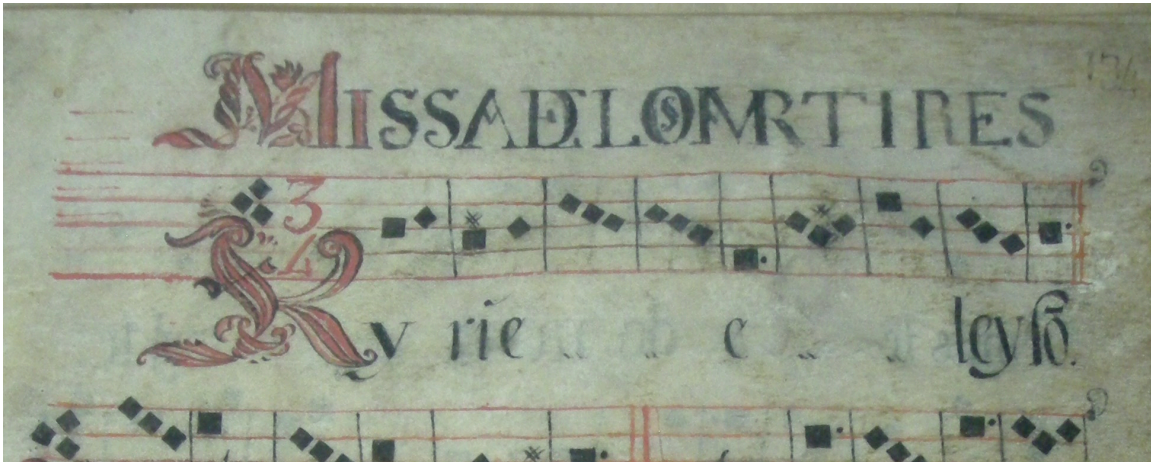 MISSA DE LOS MARTIRES
3
4
Ky rie e leysõ.